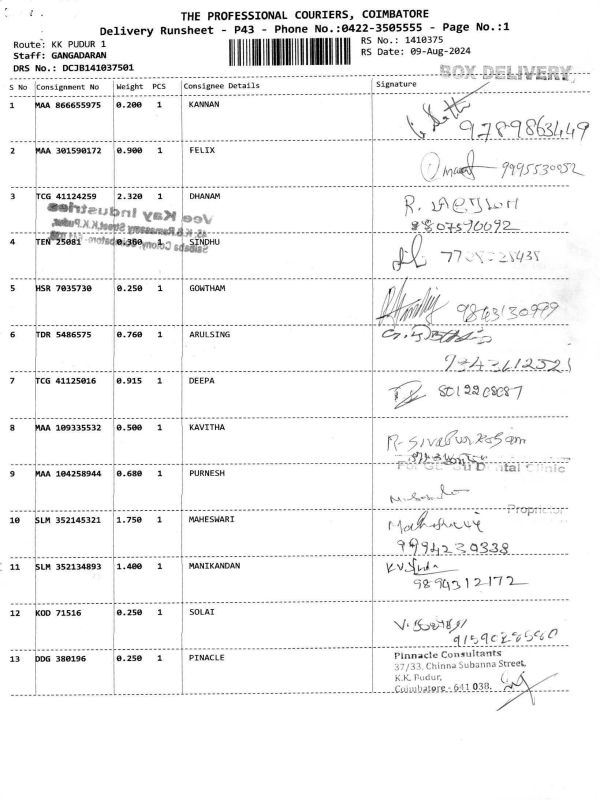 THE PROFESSIONAL COURIERS, COIMBATORE
Delivery Runsheet - P43 - Phone No.:0422-3505555 - Page No.:1
Route: KK PUDUR 1
Staff: GANGADARAN
DRS No.: DCJB141037501
RS No.: 1410375
RS Date: 09-Aug-2024
BOX DELIVERY
S No Consignment No Weight PCS Consignee Details Signature
1 MAA 866655975 0.200 1 KANNAN
9789863449
2 MAA 301590172 0.900 1 FELIX
9995530052
3 TCG 41124259 2.320 1 DHANAM
8807590092
Vee Kay Industries
4 TEN 25081 0.360 1 SINDHU
5 HSR 7035730 0.250 1 GOWTHAM
9843130999
6 TDR 5486575 0.760 1 ARULSING
7 TCG 41125016 0.915 1 DEEPA
8 MAA 109335532 0.500 1 KAVITHA
Dental Clinic
9 MAA 104258944 0.680 1 PURNESH
Proprietor
10 SLM 352145321 1.750 1 MAHESWARI
9994230338
11 SLM 352134893 1.400 1 MANIKANDAN
9894312172
12 KOD 71516 0.250 1 SOLAI
13 DDG 380196 0.250 1 PINACLE
Pinnacle Consultants
37/33, Chinna Subanna Street,
K.K. Pudur,
Coimbatore - 641 038.